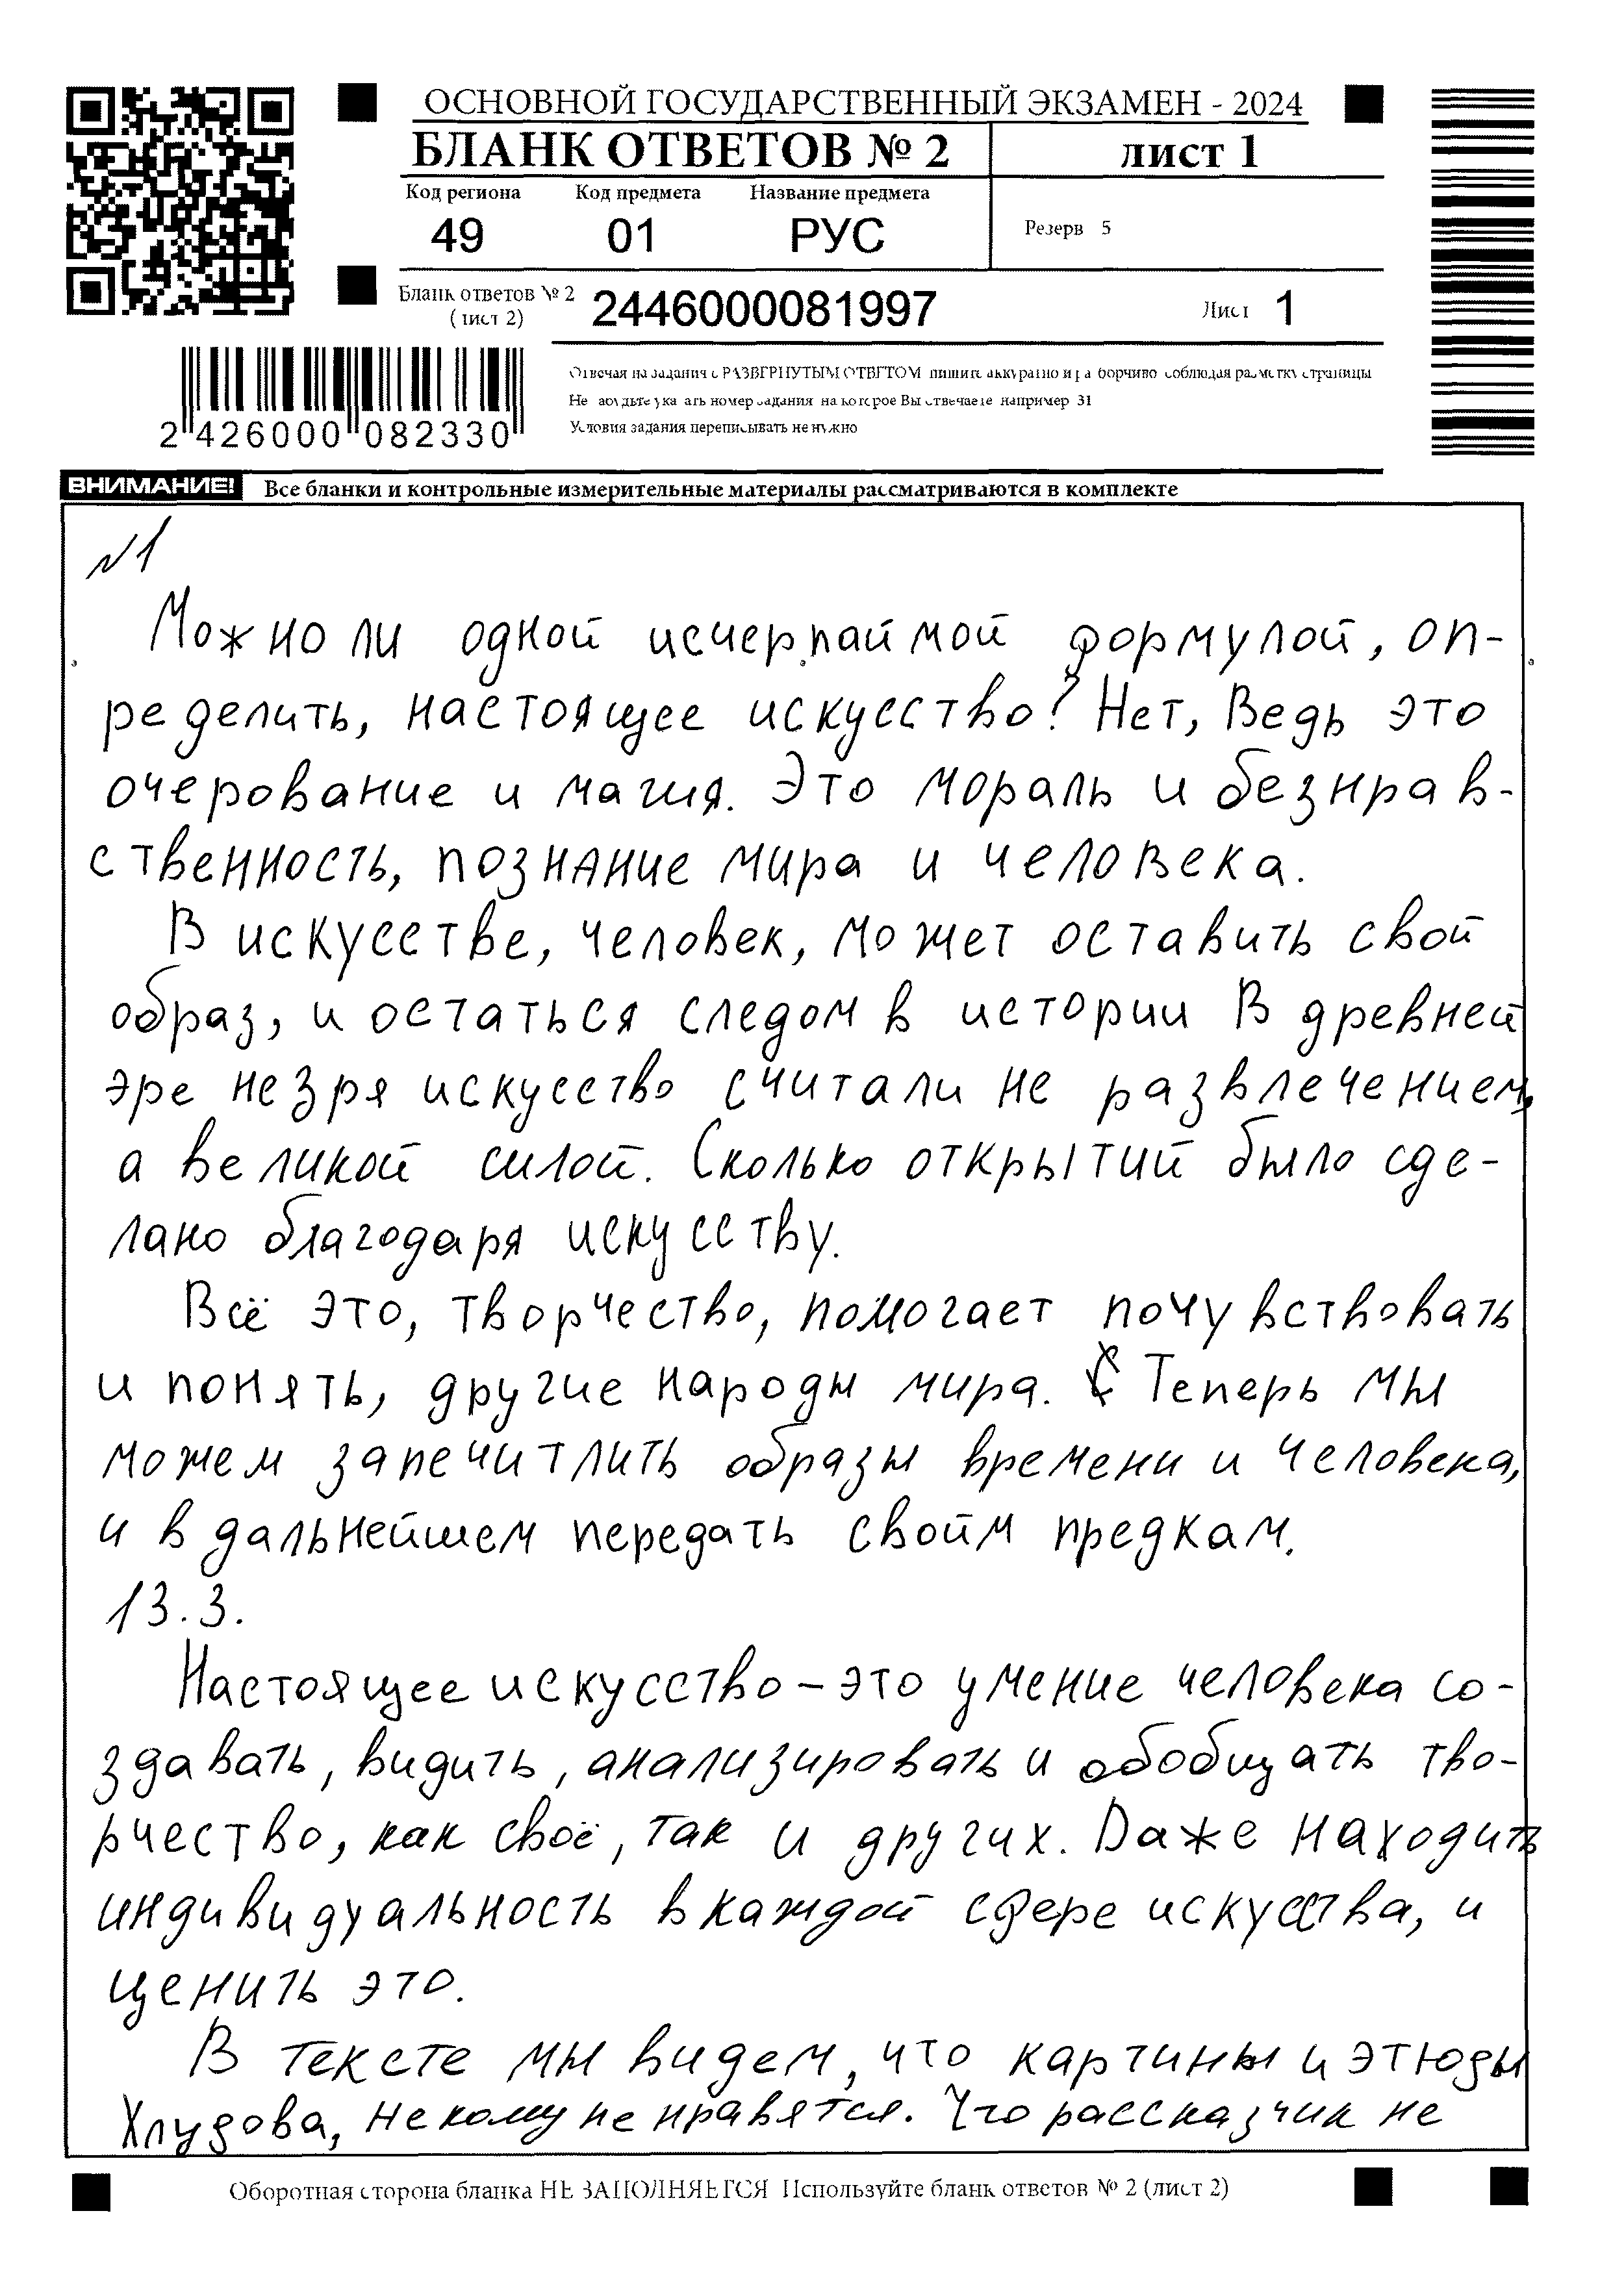 ОСНОВНОЙ ГОСУДАРСТВЕННЫЙ ЭКЗАМЕН - 2024
БЛАНК ОТВЕТОВ № 2
лист 1
Код региона Код предмета Название предмета
49 01 РУС
Резерв 5
Бланк ответов № 2
(лист 2)
2446000081997
Лист 1
2 426000 082330
Отвечая на задания с РАЗВЕРНУТЫМ ОТВЕТОМ пишите аккуратно и разборчиво соблюдая разметку страницы
Не забудьте указать номер задания на которое Вы отвечаете например 31
Условия задания переписывать не нужно
ВНИМАНИЕ! Все бланки и контрольные измерительные материалы рассматриваются в комплекте
№1
Можно ли одной исчерпаймой формулой, оп-
ределить, настоящее искусство? Нет, Ведь это
очерование и магия. Это мораль и безнрав-
ственность, познание мира и человека.
В искусстве, человек, может оставить свой
образ, и остаться следом в истории В древней
эре незря искусство считали не развлечением,
а великой силой. Сколько открытий было сде-
лано благодаря искусству.
Всё это, творчество, помогает почувствовать
и понять, другие народы мира. Теперь мы
можем запечитлить образы времени и человека,
и в дальнейшем передать своим предкам.
13.3.
Настоящее искусство – это умение человека со-
здавать, видить, анализировать и обобщать тво-
рчество, как своё, так и других. Даже находить
индивидуальность в каждой сфере искусства, и
ценить это.
В тексте мы видем, что картины и этюды
Хлудова, некому не нравятся. Что рассказчик не
Оборотная сторона бланка НЕ ЗАПОЛНЯЕТСЯ Используйте бланк ответов № 2 (лист 2)